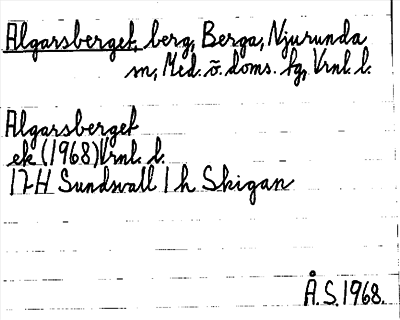 Algarsberget, berg, Berga, Njurunda
sn, Med. ö. doms. fg, Vrnl. l.
Algarsberget
ek (1968) Vrnl. l.
17H Sundsvall 1 h Skigan
Å.S. 1968.